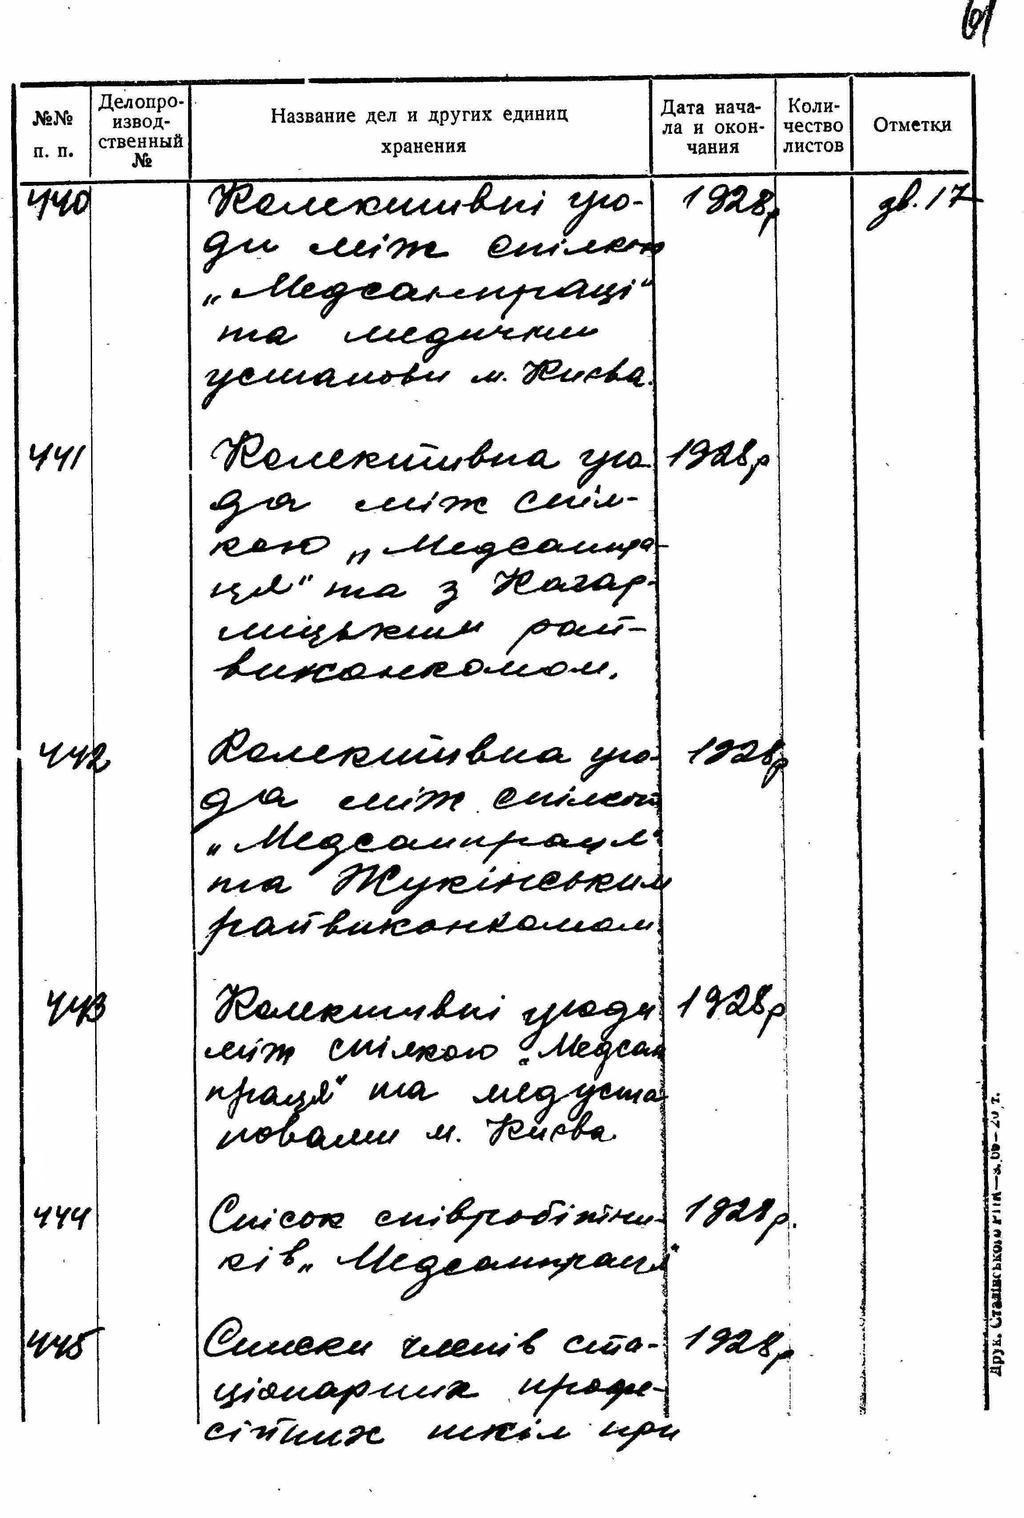 61
№№ п. п.
Делопро-
извод-
ственный
№
Название дел и других единиц
хранения
Дата нача-
ла и окон-
чания
Коли-
чество
листов
Отметки
440 Колективні уго- 1928р зв. 17
ди між спілкою
„Медсанпраці"
та медичними
установи м. Києва.
441 Колективна уго- 1928р
да між спіл-
кою „Медсанпра-
ця" та з Кагар-
лицьким рай-
виконкомом.
442 Колективна уго- 1928р
да між спілкою
„Медсанпраця"
та Жукінським
райвиконкомом
443 Колективні угоди 1928р
між спілкою „Медсан
праця" та медуста
новами м. Києва
444 Список співробітни- 1928р.
ків „Медсанпраця"
445 Списки членів ста- 1928р
ціонарних профе-
сійних шкіл при
Друк. Сталінського РПК